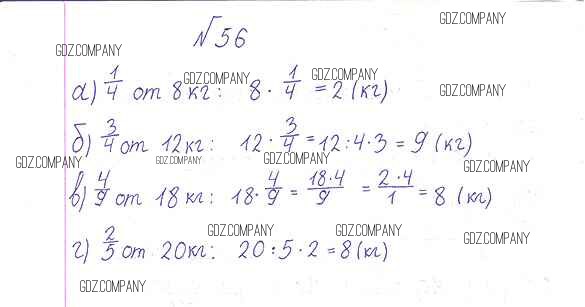 GDZ.COMPANY
№56
GDZ.COMPANY
GDZ.COMPANY
GDZ.COMPANY
а) 1/4 от 8кг: 8 · 1/4 = 2 (кг)
GDZ.COMPANY
б) 3/4 от 12кг: 12 · 3/4 = 12:4·3 = 9 (кг)
GDZ.COMPANY
GDZ.COMPANY
GDZ.COMPANY
GDZ.COMPANY
в) 4/9 от 18 кг: 18 · 4/9 = 18·4/9 = 2·4/1 = 8 (кг)
GDZ.COMPANY
GDZ.COMPANY
GDZ.COMPANY
г) 2/5 от 20кг: 20:5·2 = 8 (кг)
GDZ.COMPANY